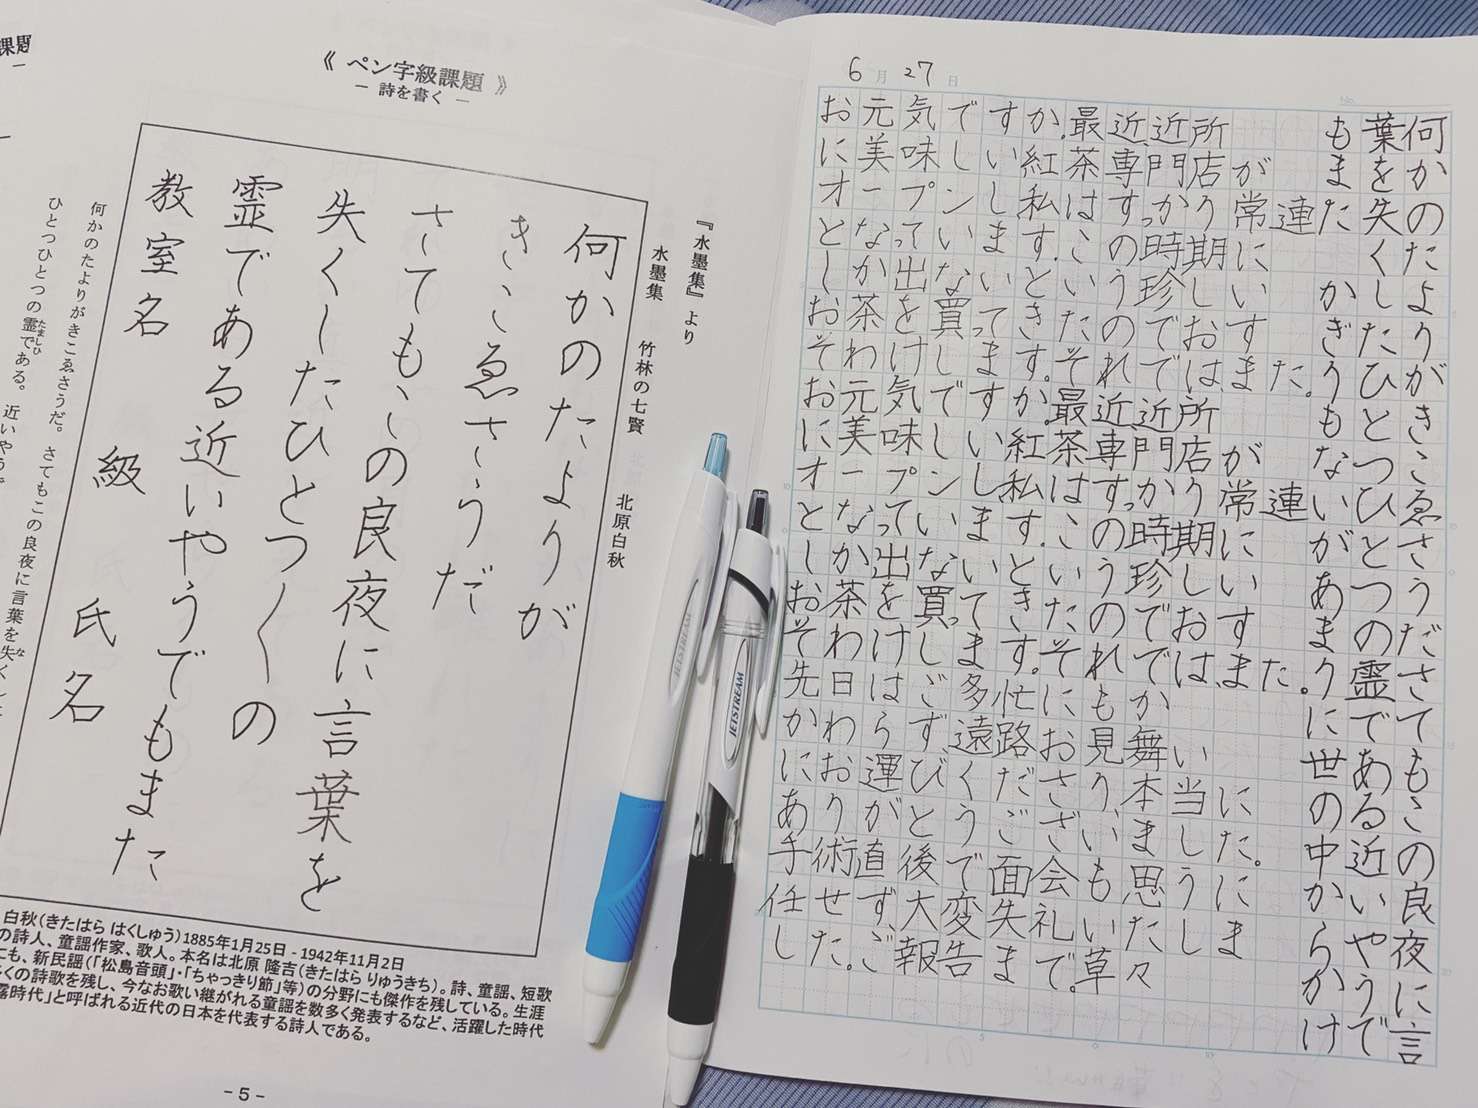 課題
《 ペン字級課題 》
― 詩を書く ―
『水墨集』より
水墨集 竹林の七賢 北原白秋
何かのたよりが
きこゑさうだ
さてもこの良夜に言葉を
失くしたひとつ〱の
霊である近いやうでもまた
教室名 級 氏名
何かのたよりがきこゑさうだ。さてもこの良夜に言葉を失くした
ひとつひとつの霊である。近いやうで
たましひ
な
白秋(きたはら はくしゅう)1885年1月25日 - 1942年11月2日
の詩人、童謡作家、歌人。本名は北原 隆吉(きたはら りゅうきち)。詩、童謡、短歌
にも、新民謡(「松島音頭」・「ちゃっきり節」等)の分野にも傑作を残している。生涯
くの詩歌を残し、今なお歌い継がれる童謡を数多く発表するなど、活躍した時代
露時代」と呼ばれる近代の日本を代表する詩人である。
- 5 -
JETSTREAM
JETSTREAM
6月27日
No.
お元気ですか。最近、近所
に美味しい紅茶専門店が
オープンし私はすっかり常連
となっています。この時期に
しか出ないという珍しい
お茶を買ってきたのでおす
そわけします。それでは、また。
お元気ですか。最近、近所
に美味しい紅茶専門店が
オープンし私はすっかり常連
となっています。この時期に
しか出ないという珍しい
お茶を買ってきたのでおす
そわけします。それでは、また。
先日はご多忙にもか
かわらず、遠路お見舞い
にお運びくださり、本当に
ありがとうございました。
手術直後で面会も思うに
任せず、大変失礼いたしま
した。ご報告まで。草々
何かのたよりがきこゑさうださてもこの良夜に言
葉を失くしたひとつひとつの霊である近いやうで
もまた かぎりもないがあまりに世の中からかけ